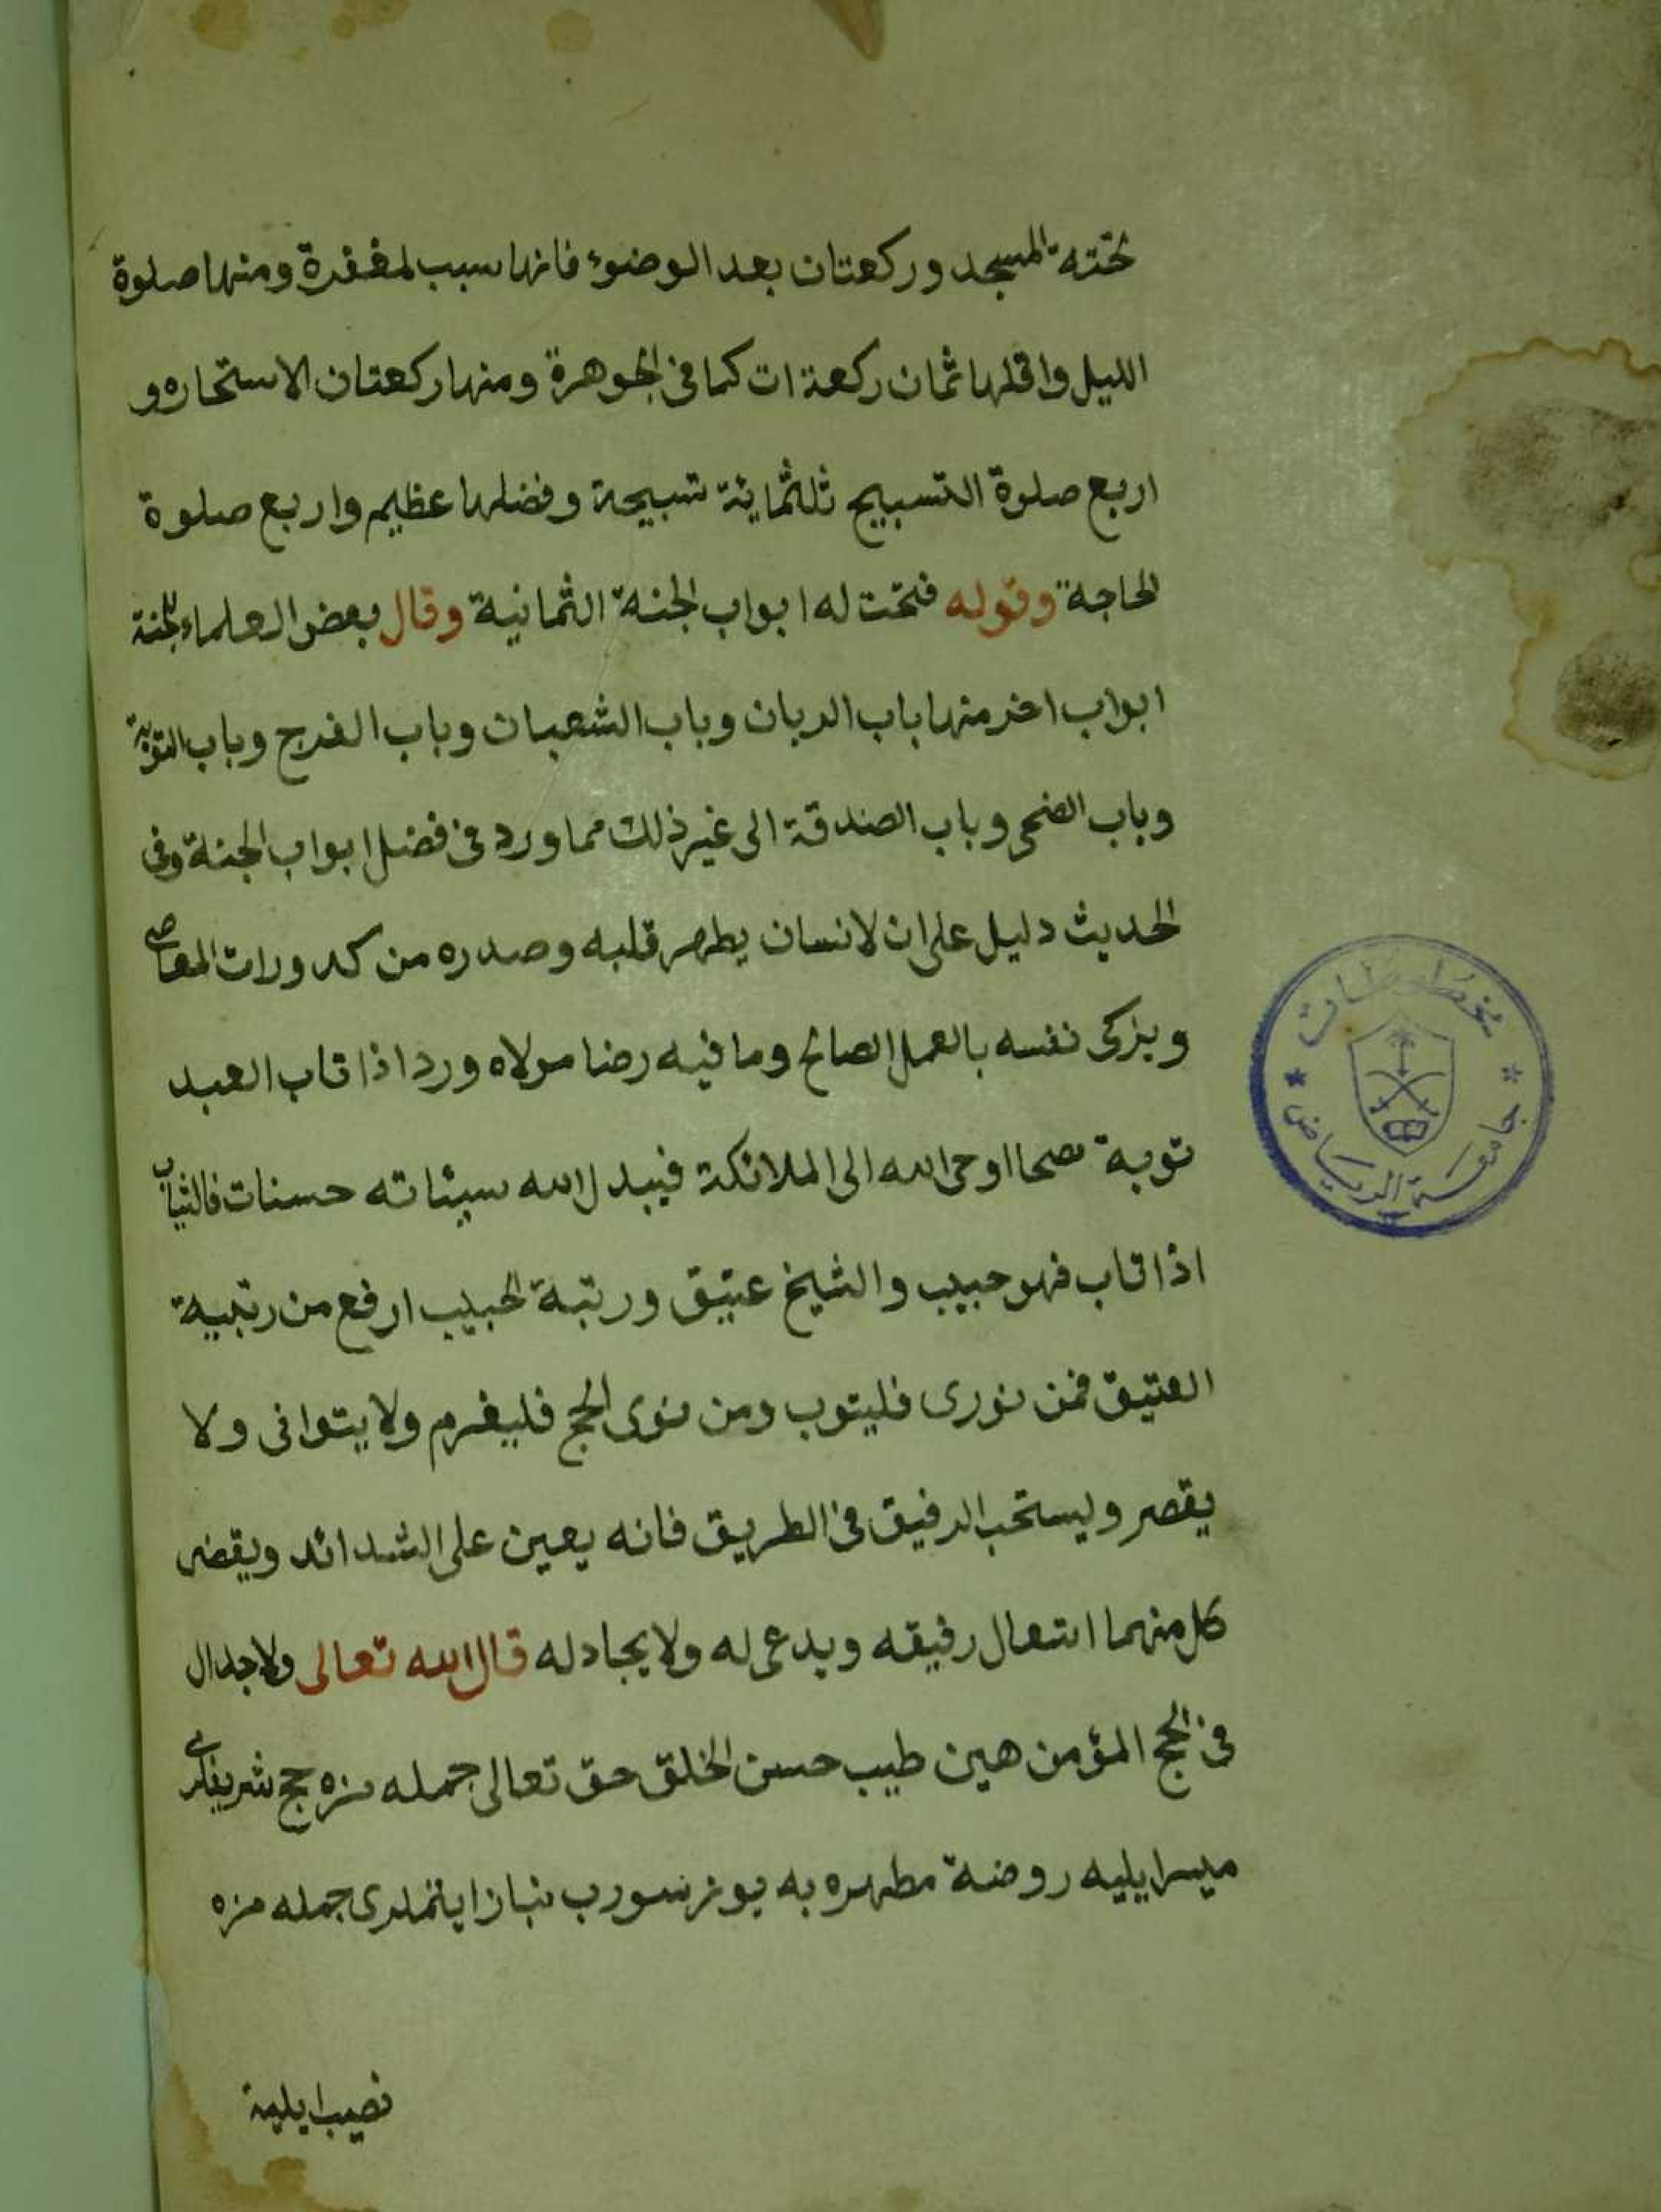 تحتة المسجد وركعتان بعد الوضوء فانها سبب لمغفرة ومنها صلوة
الليل واقلها ثمان ركعة ات كما فى الجوهرة ومنها ركعتان الاستخاره و
اربع صلوة التسبيح ثلثمائة تسبيحة وفضلها عظيم واربع صلوة
الحاجة وقوله فتحت له ابواب الجنة الثمانية وقال بعض العلماء للجنة
ابواب اخر منها باب الريان وباب الشعبان وباب الفرج وباب التوبة
وباب الضحى وباب الصدقة الى غير ذلك مما ورد فى فضل ابواب الجنة وفى
الحديث دليل على ان لانسان يطهر قلبه وصدره من كدورات المعاصى
ويزكى نفسه بالعمل الصالح وما فيه رضا مولاه ورد اذا تاب العبد
توبة نصحا اوحى الله الى الملائكة فيبدل الله سيئاته حسنات فالشاب
اذا تاب فهو حبيب والشيخ عتيق ورتبة الحبيب ارفع من رتبية
العتيق فمن نورى فليتوب ومن نوى الحج فليغرم ولا يتوانى ولا
يقصر وليستحب الرفيق فى الطريق فانه يعين على الشدائد ويقضى
كل منهما اشعال رفيقه ويدعى له ولا يجادله قال الله تعالى ولا جدال
فى الحج المؤمن هين طيب حسن الخلق حق تعالى جمله مزه حج شريفلرى
ميسر ايليه روضة مطهره به يوز سورب نياز ايتملرى جمله مزه
نصيب ايليه
مخطوطات
جامعة الرياض